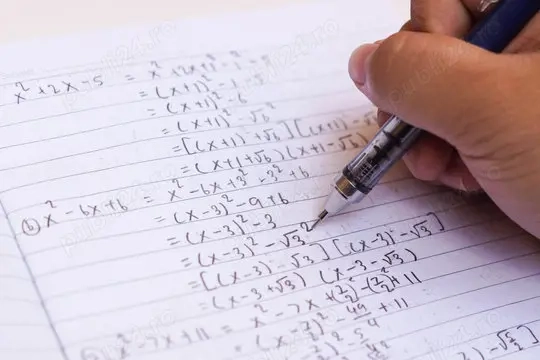 x² + 2x - 5 = x² + 2x + 1² - 1² - 5
= (x+1)² - 1 - 5
= (x+1)² - 6
= (x+1)² - √6²
= [(x+1) + √6] [(x+1) - √
= (x+1+√6) (x+1-√6)
x² - 6x + 6 = x² - 6x + 3² - 3² + 6
= (x-3)² - 9 + 6
= (x-3)² - 3
= (x-3)² - √3²
= [(x-3) - √3] [(x-3) - √3]
= (x-3+√3) (x-3-√3)
x² - 7x + 11 = x² - 7x + (7/2)² - (7/2)² + 11
= (x - 7/2)² - 49/4 + 11
= (x - 7/2)² - 5/4